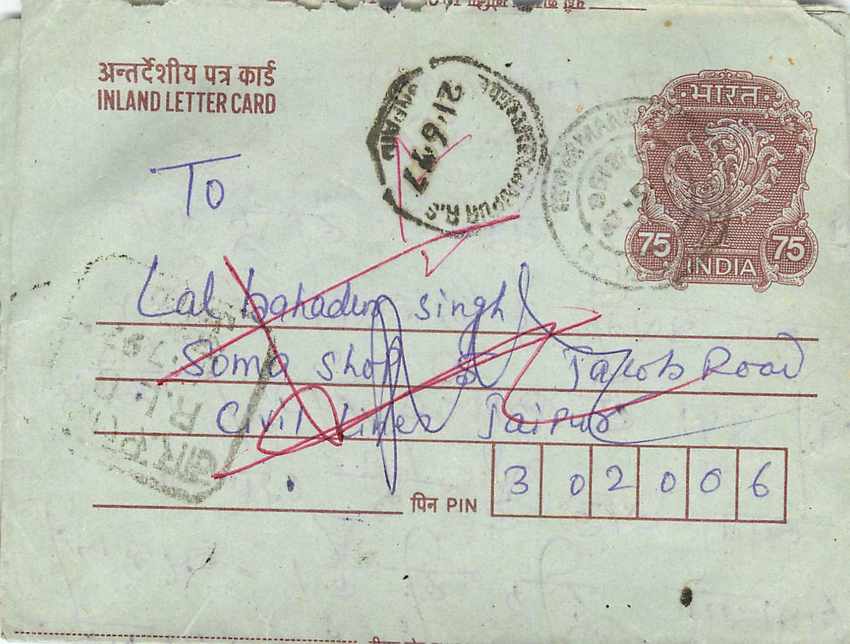 अन्तर्देशीय पत्र कार्ड
INLAND LETTER CARD
भारत
75 75
INDIA
21·6·97
To
Lal bahadur singh
Soma shop Jakob Road
Civil Lines Jaipur
पिन PIN 302006
R.L.